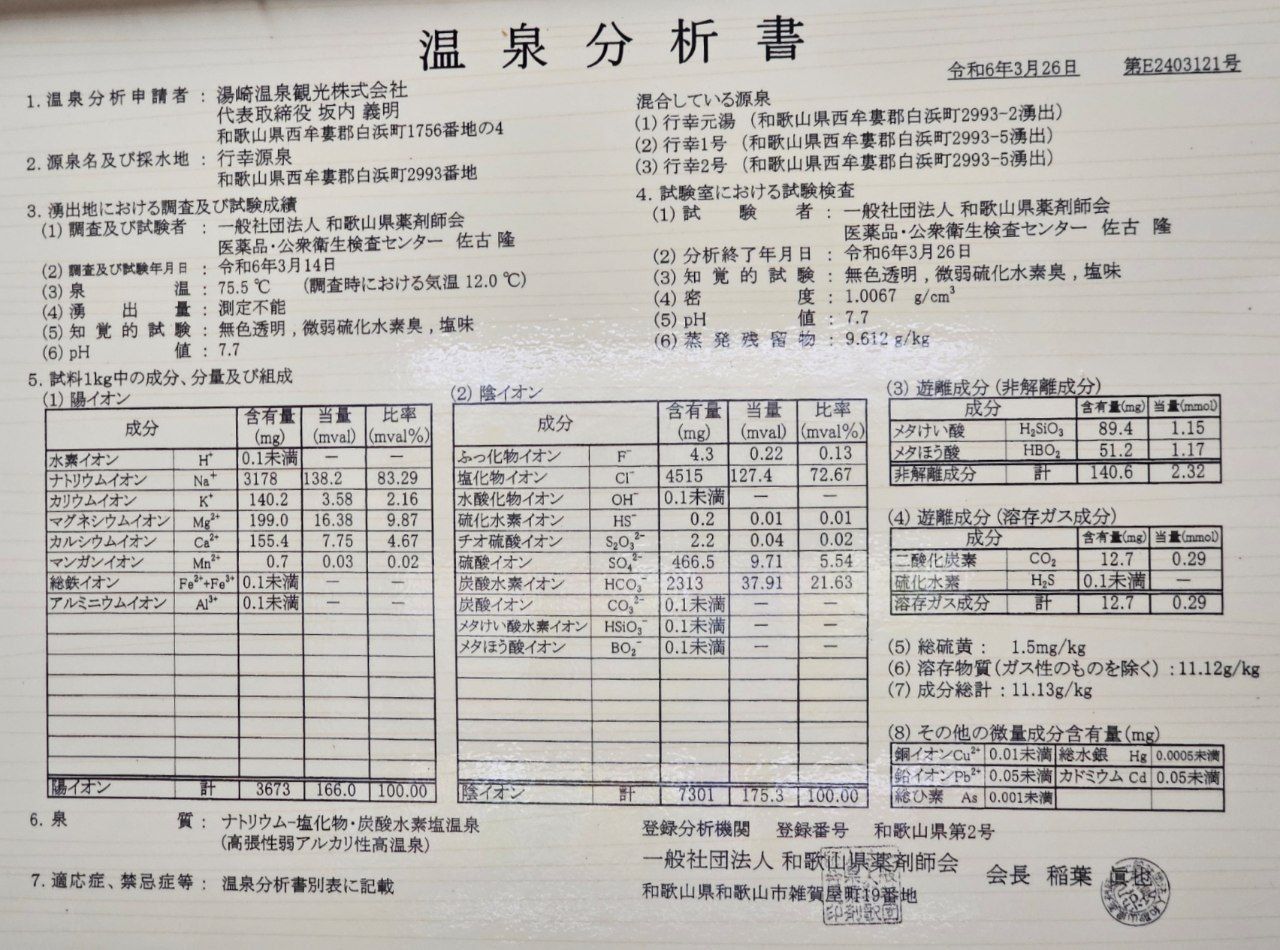 温泉分析書
令和6年3月26日 第E2403121号
1. 温泉分析申請者 : 湯崎温泉観光株式会社
代表取締役 坂内 義明
和歌山県西牟婁郡白浜町1756番地の4
2. 源泉名及び採水地 : 行幸源泉
和歌山県西牟婁郡白浜町2993番地
混合している源泉
(1) 行幸元湯 (和歌山県西牟婁郡白浜町2993-2湧出)
(2) 行幸1号 (和歌山県西牟婁郡白浜町2993-5湧出)
(3) 行幸2号 (和歌山県西牟婁郡白浜町2993-5湧出)
3. 湧出地における調査及び試験成績
(1) 調査及び試験者 : 一般社団法人 和歌山県薬剤師会
医薬品・公衆衛生検査センター 佐古 隆
(2) 調査及び試験年月日 : 令和6年3月14日
(3) 泉温 : 75.5 ℃ (調査時における気温 12.0 ℃)
(4) 湧出量 : 測定不能
(5) 知覚的試験 : 無色透明 , 微弱硫化水素臭 , 塩味
(6) pH値 : 7.7
4. 試験室における試験検査
(1) 試験者 : 一般社団法人 和歌山県薬剤師会
医薬品・公衆衛生検査センター 佐古 隆
(2) 分析終了年月日 : 令和6年3月26日
(3) 知覚的試験 : 無色透明 , 微弱硫化水素臭 , 塩味
(4) 密度 : 1.0067 g/cm³
(5) pH値 : 7.7
(6) 蒸発残留物 : 9.612 g/kg
5. 試料1kg中の成分、分量及び組成
(1) 陽イオン
成分 含有量(mg) 当量(mval) 比率(mval%)
水素イオン H⁺ 0.1未満 － －
ナトリウムイオン Na⁺ 3178 138.2 83.29
カリウムイオン K⁺ 140.2 3.58 2.16
マグネシウムイオン Mg²⁺ 199.0 16.38 9.87
カルシウムイオン Ca²⁺ 155.4 7.75 4.67
マンガンイオン Mn²⁺ 0.7 0.03 0.02
総鉄イオン Fe²⁺+Fe³⁺ 0.1未満 － －
アルミニウムイオン Al³⁺ 0.1未満 － －
陽イオン 計 3673 166.0 100.00
(2) 陰イオン
成分 含有量(mg) 当量(mval) 比率(mval%)
ふっ化物イオン F⁻ 4.3 0.22 0.13
塩化物イオン Cl⁻ 4515 127.4 72.67
水酸化物イオン OH⁻ 0.1未満 － －
硫化水素イオン HS⁻ 0.2 0.01 0.01
チオ硫酸イオン S₂O₃²⁻ 2.2 0.04 0.02
硫酸イオン SO₄²⁻ 466.5 9.71 5.54
炭酸水素イオン HCO₃⁻ 2313 37.91 21.63
炭酸イオン CO₃²⁻ 0.1未満 － －
メタけい酸水素イオン HSiO₃⁻ 0.1未満 － －
メタほう酸イオン BO₂⁻ 0.1未満 － －
陰イオン 計 7301 175.3 100.00
(3) 遊離成分 (非解離成分)
成分 含有量(mg) 当量(mmol)
メタけい酸 H₂SiO₃ 89.4 1.15
メタほう酸 HBO₂ 51.2 1.17
非解離成分 計 140.6 2.32
(4) 遊離成分 (溶存ガス成分)
成分 含有量(mg) 当量(mmol)
二酸化炭素 CO₂ 12.7 0.29
硫化水素 H₂S 0.1未満 －
溶存ガス成分 計 12.7 0.29
(5) 総硫黄 : 1.5mg/kg
(6) 溶存物質 (ガス性のものを除く) : 11.12g/kg
(7) 成分総計 : 11.13g/kg
(8) その他の微量成分含有量(mg)
銅イオンCu²⁺ 0.01未満 総水銀 Hg 0.0005未満
鉛イオンPb²⁺ 0.05未満 カドミウム Cd 0.05未満
総ひ素 As 0.001未満
6. 泉質 : ナトリウム-塩化物・炭酸水素塩温泉
(高張性弱アルカリ性高温泉)
7. 適応症、禁忌症等 : 温泉分析書別表に記載
登録分析機関 登録番号 和歌山県第2号
一般社団法人 和歌山県薬剤師会 会長 稲葉 眞也
和歌山県和歌山市雑賀屋町19番地